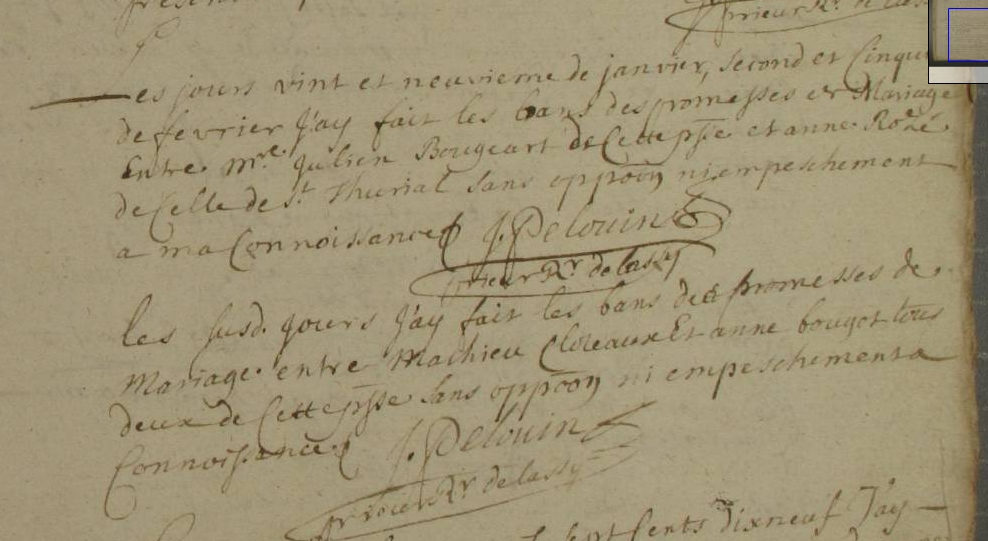 prieur Rr de lassy
Les jours vint et neuvieme de janvier, second et Cinqui
de fevrier J'ay fait les bans des promesses de Mariage
Entre Mre Julien Bougeart de Cette psse et anne Rozé
de Celle de St Thurial sans oppõon ni empeschement
a ma Connoissance J. Delouin
prieur Rr de lassy
les susd. jours J'ay fait les bans de promesses de
Mariage entre Mathieu Cloteaux Et anne bougot tous
deux de Cette psse sans oppõon ni empeschement a
Connoissance J. Delouin
prieur Rr de lassy
sept Cents dixneuf J'ay